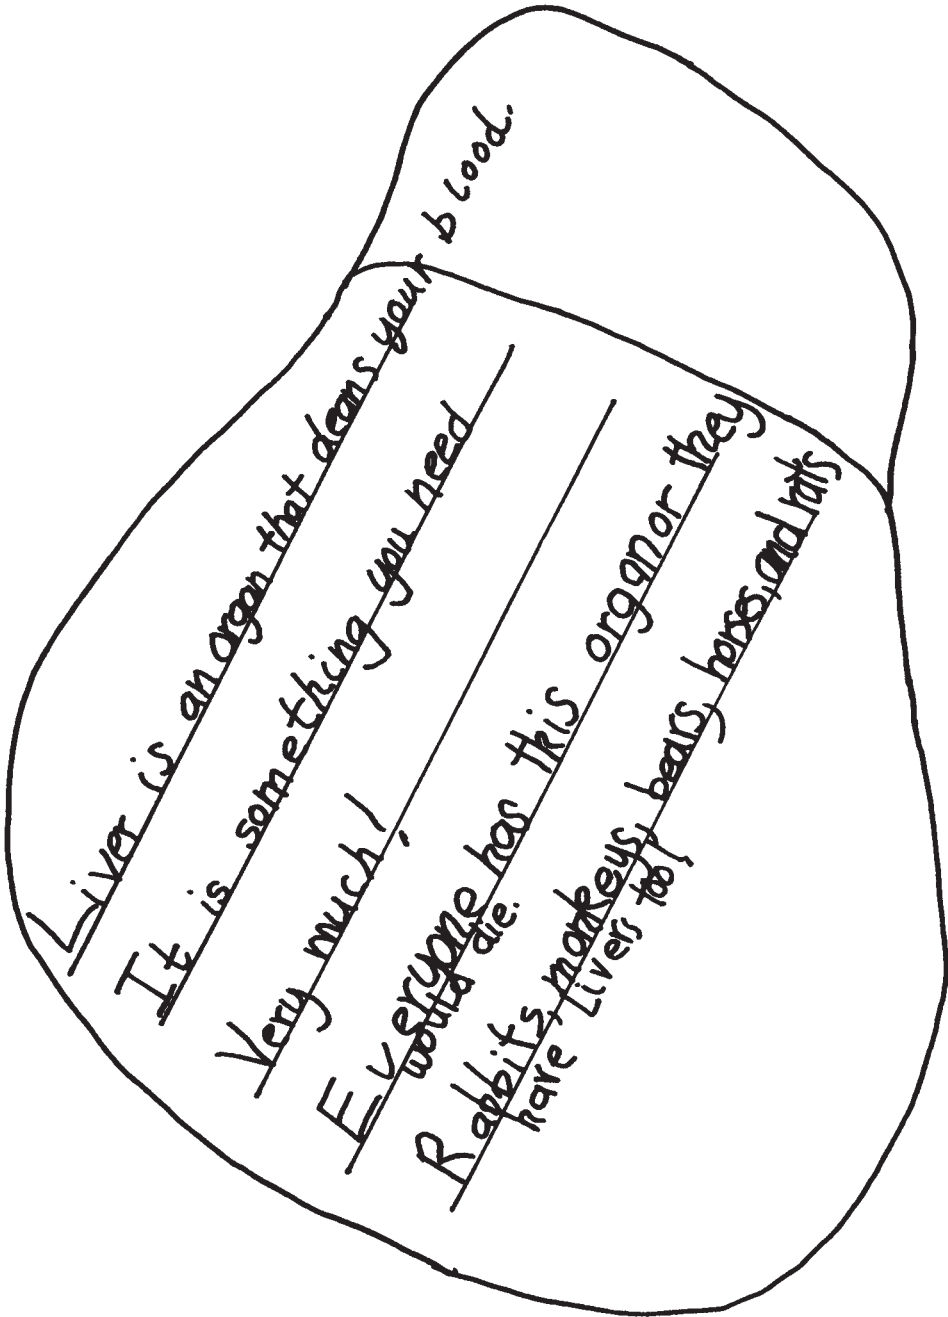 Liver is an organ that cleans your blood.
It is something you need
Very much!
Everyone has this organ or they
would die.
Rabbits, monkeys, bears, horses, and rats
have Livers too!